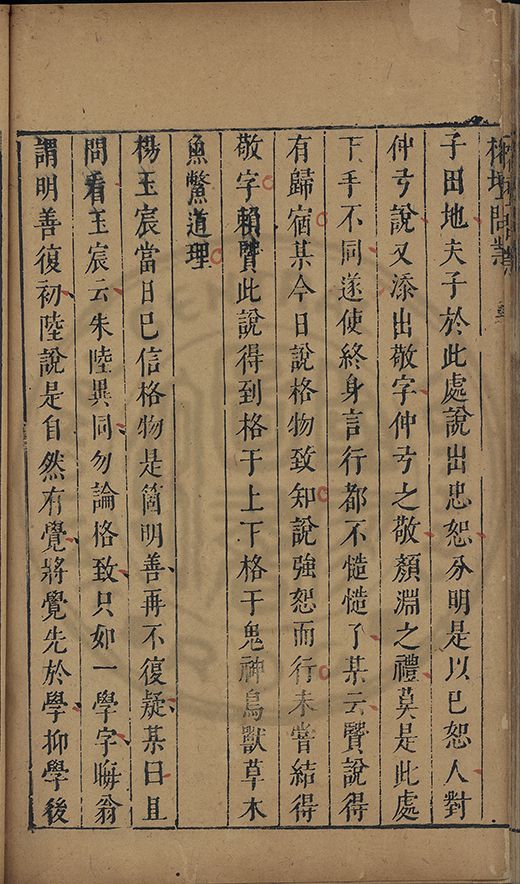 榕壇問業
子田地夫子於此處說出忠恕分明是以已恕人對
仲弓說又添出敬字仲弓之敬顏淵之禮莫是此處
下手不同遂使終身言行都不慥慥了某云賢說得
有歸宿某今日說格物致知說強恕而行未嘗結得
敬字賴賢此說得到格于上下格于鬼神鳥獸草木
魚鱉道理
楊玉宸當日已信格物是箇明善再不復疑某曰且
問看玉宸云朱陸異同勿論格致只如一學字晦翁
謂明善復初陸說是自然有覺將覺先於學抑學後